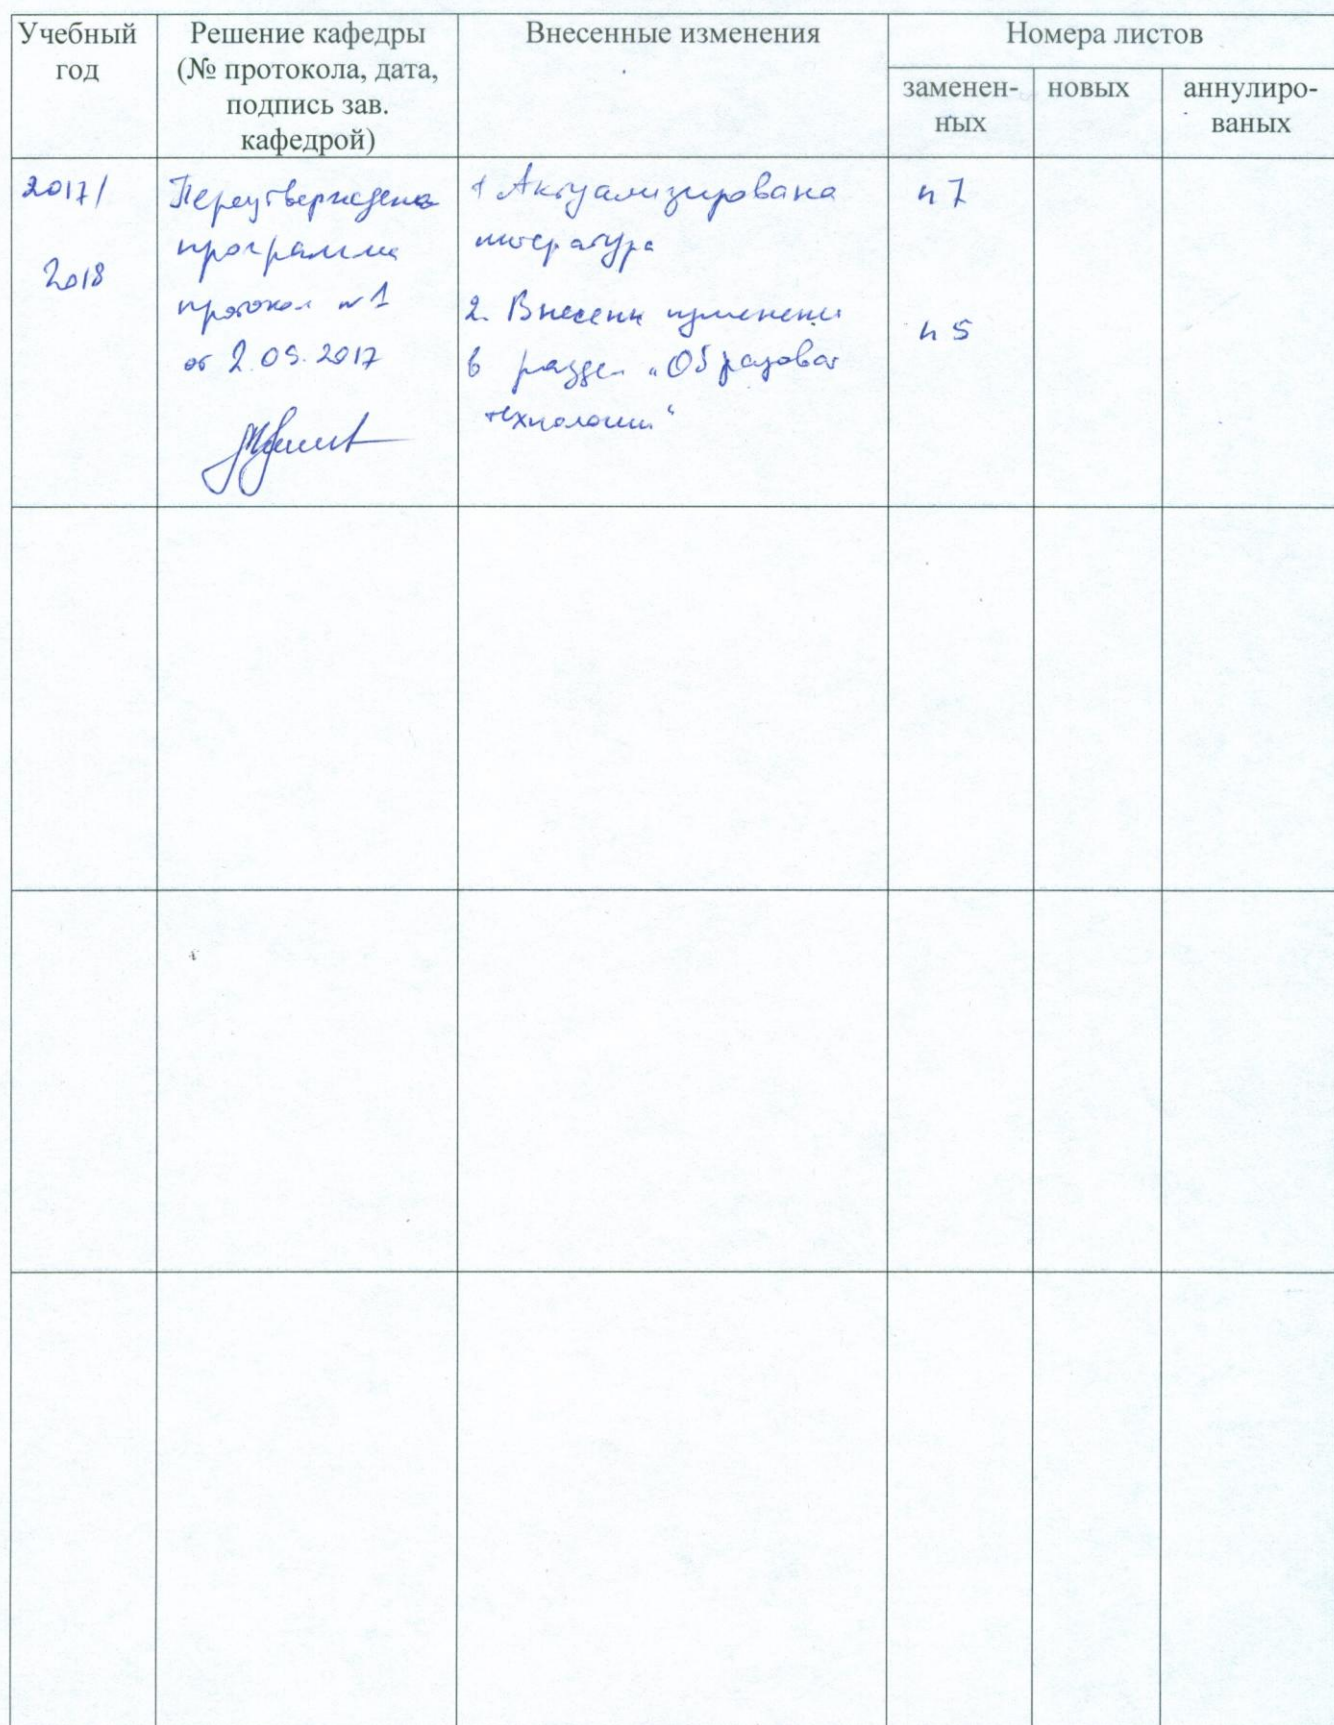 Учебный год
Решение кафедры
(№ протокола, дата,
подпись зав.
кафедрой)
Внесенные изменения
Номера листов
заменен-
ных
новых
аннулиро-
ваных
2017/
2018
Переутверждена
программа
протокол №1
от 2.09.2017
1 Актуализирована
литература
2. Внесены изменени
в раздел „Образоват
технологии“
п 7
п 5